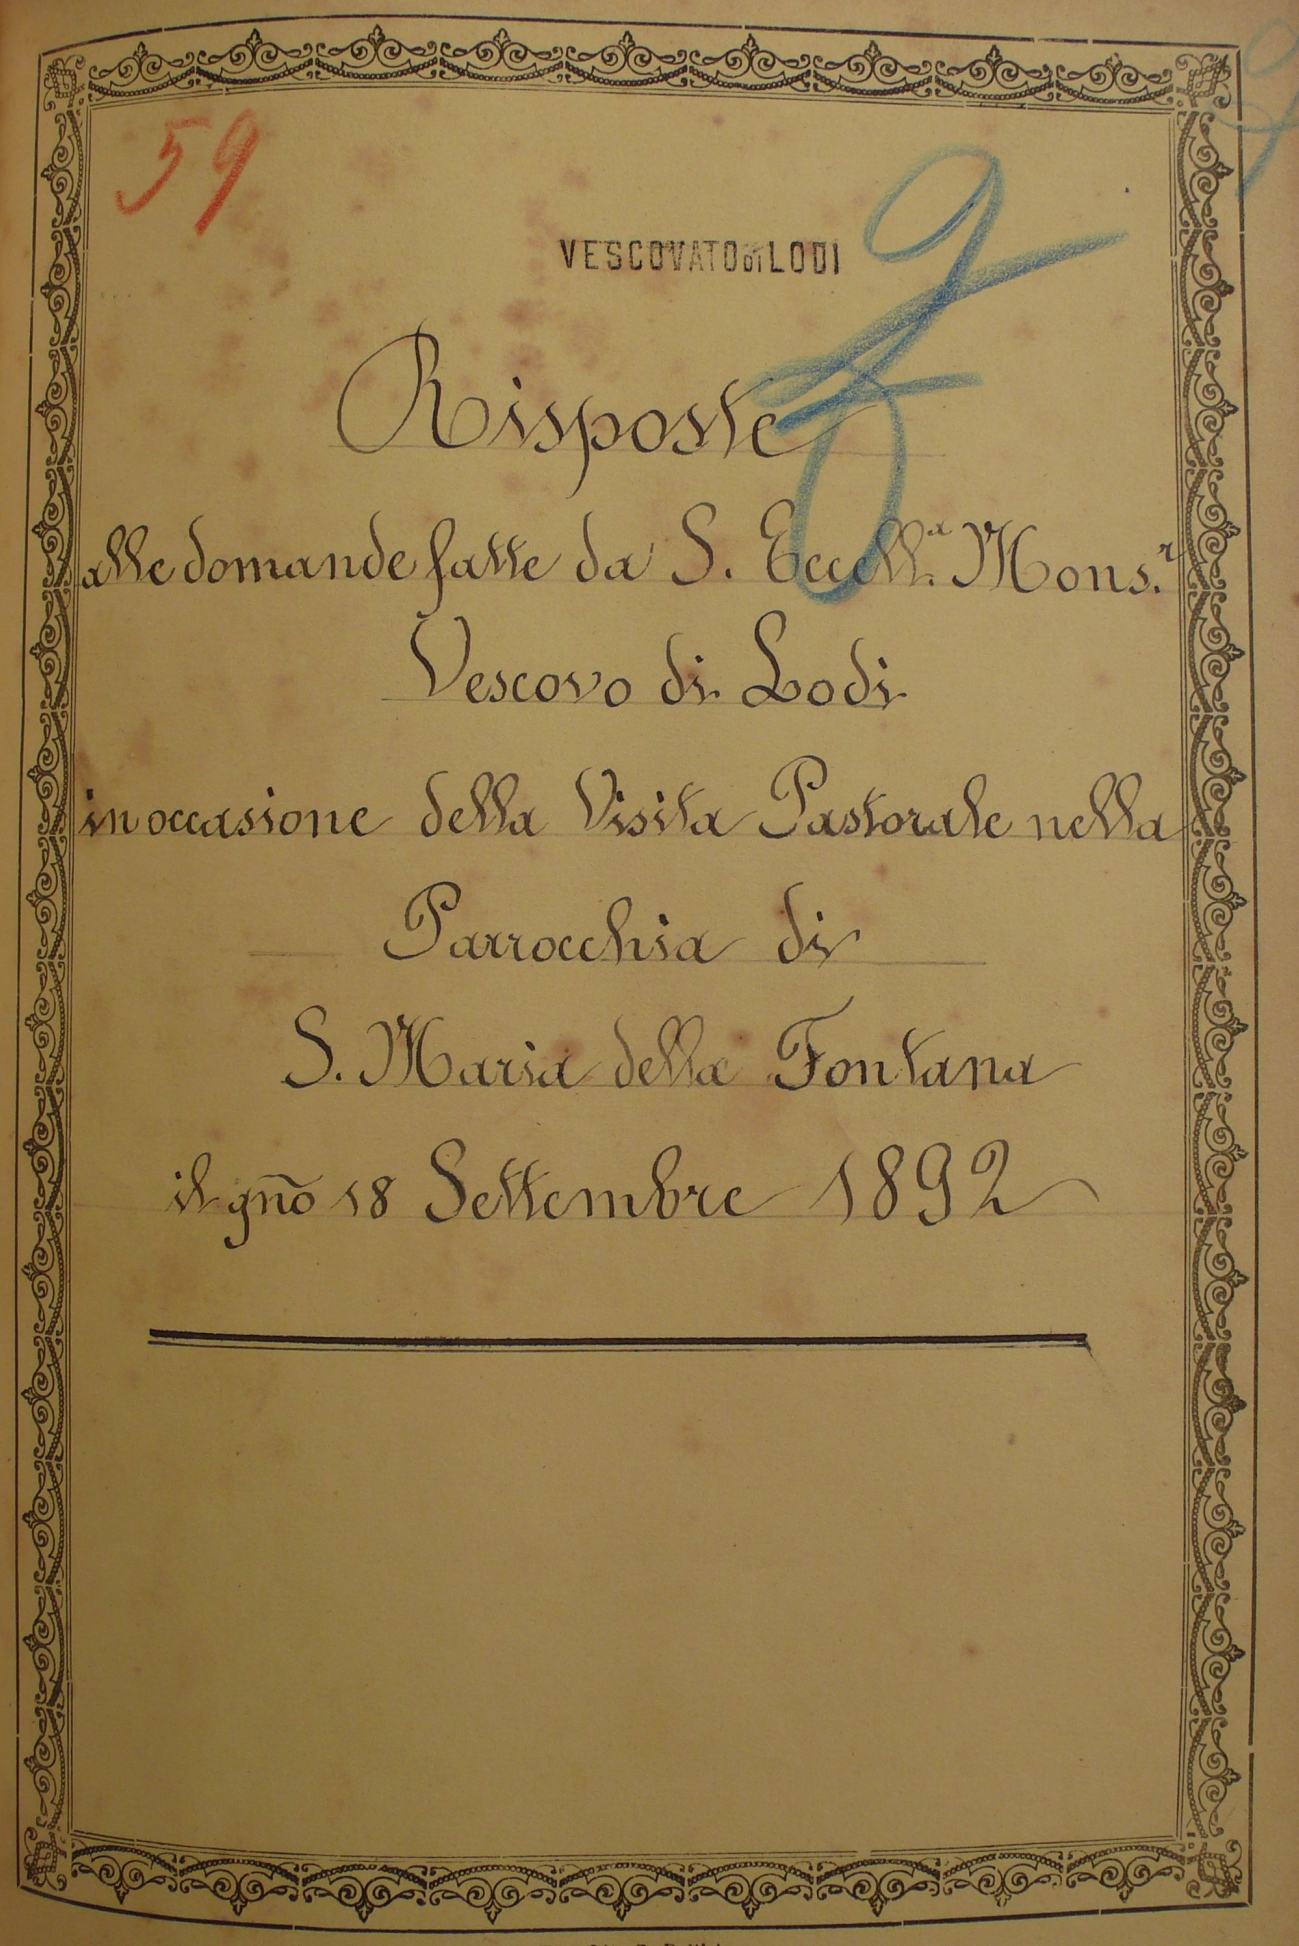 59
VESCOVATO DI LODI
Risposte
alle domande fatte da S. Eccell.a Mons.r
Vescovo di Lodi
in occasione della Visita Pastorale nella
Parrocchia di
S. Maria della Fontana
il gño 18 Settembre 1892